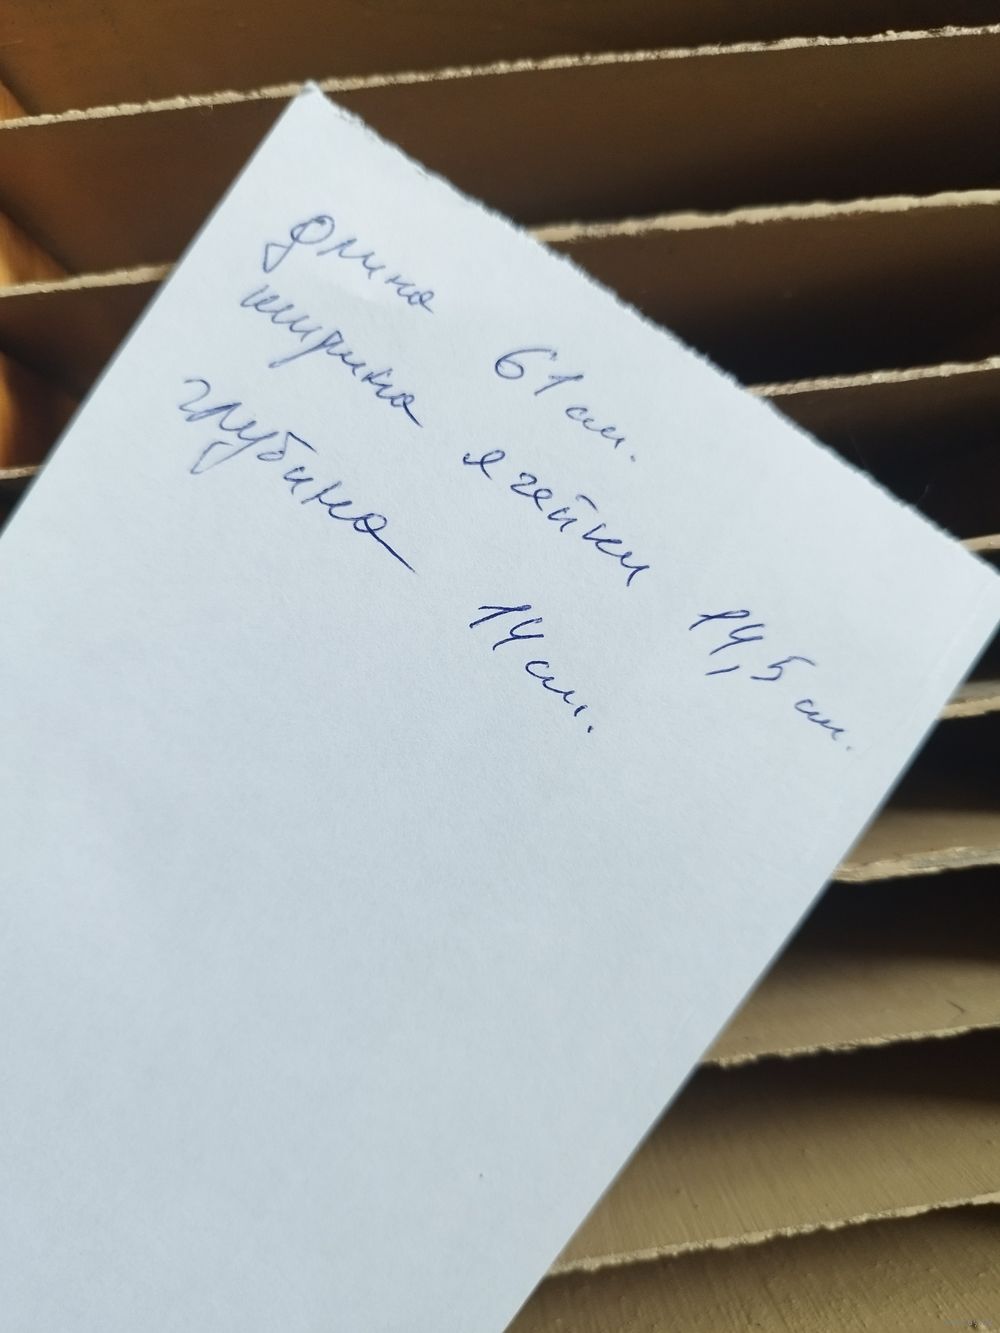 Длина 61 см.
ширина ячейки 14,5 см.
глубина 14 см.